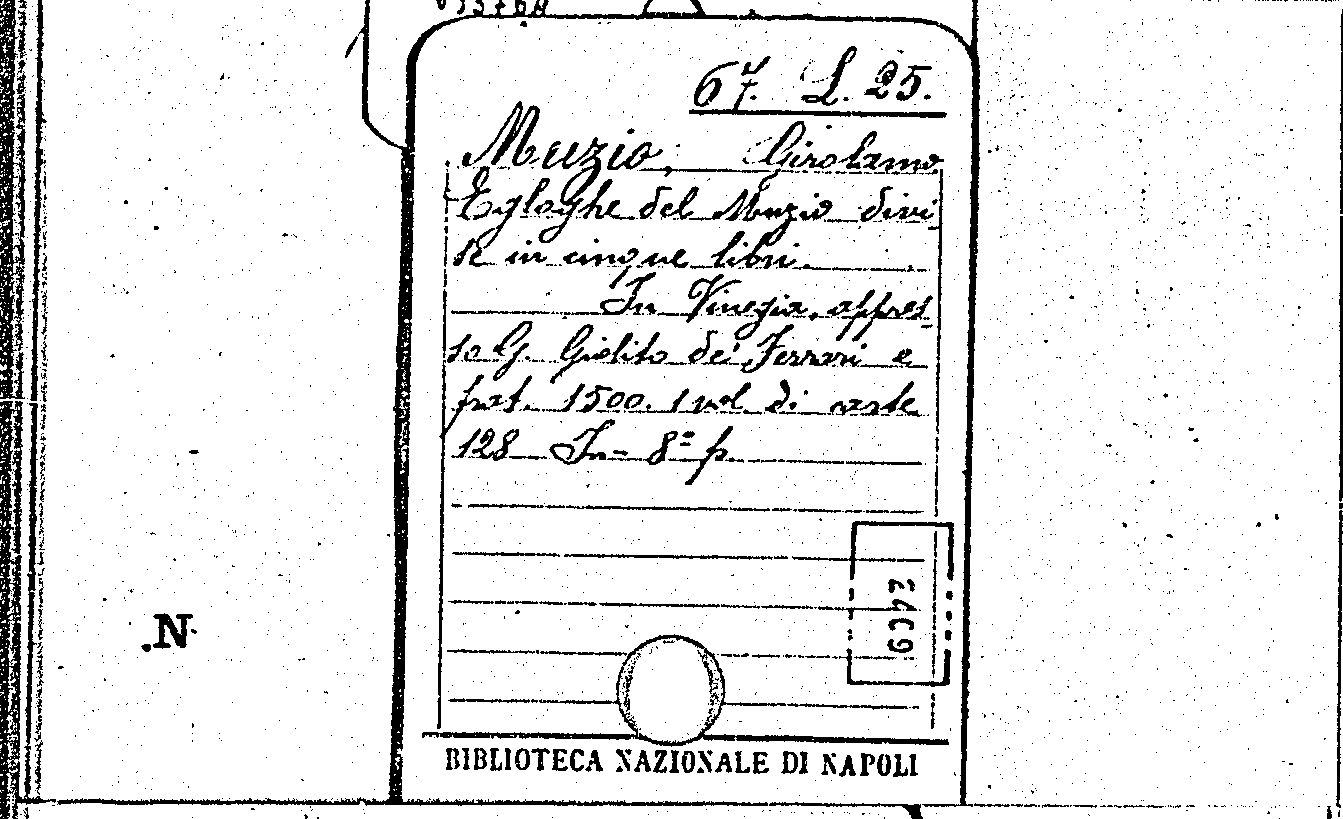 67. L. 25.
Muzio, Girolamo
Egloghe del Muzio divi
se in cinque libri.
In Vinegia, appres
so G. Giolito de' Ferrari e
frat. 1500. 1 vol. di carte
128 In-8º p.
2409
.N
BIBLIOTECA NAZIONALE DI NAPOLI